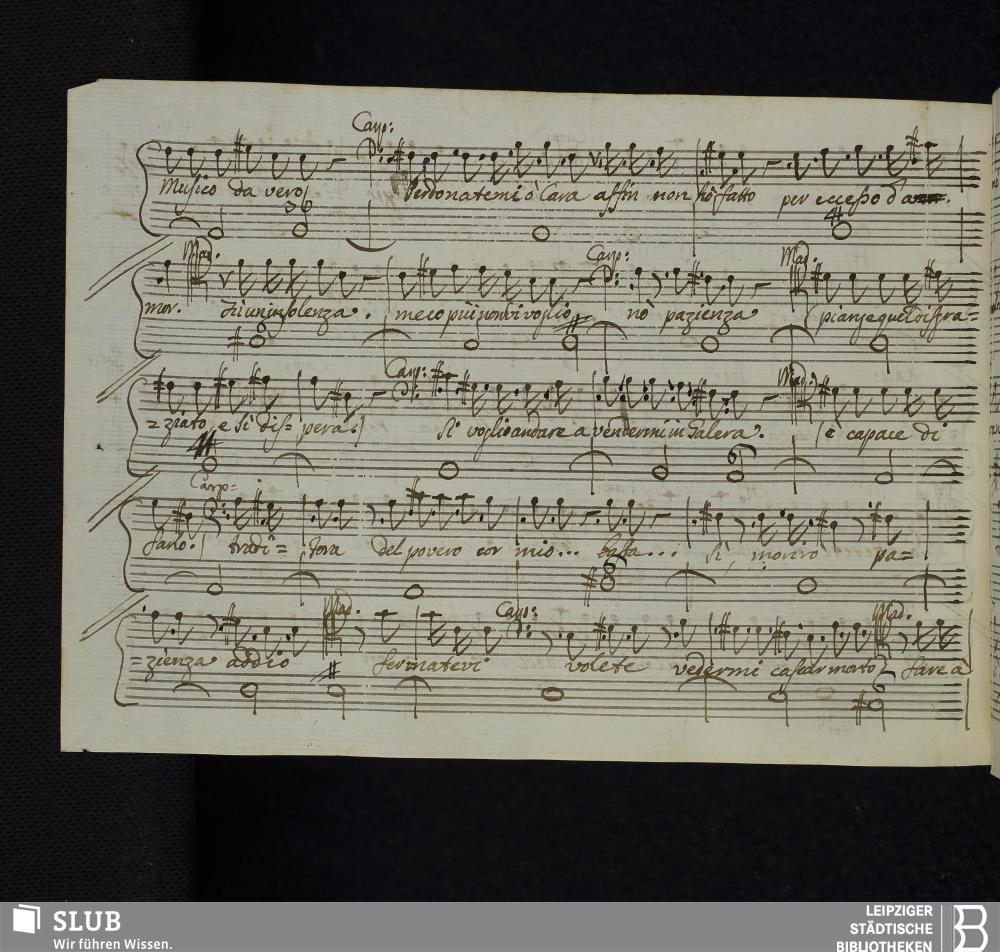 Carp:
Musico da vero Perdonatemi ò Cara affin non hò fatto per eccesso d'a
Mad. Carp: Mad.
mor. è un insolenza. meco più non vi voglio nò pazienza (piange quel disgra=
Carp: Mad.
=ziato e si dis=pera.) Si voglio andare a vendermi in Galera. (è capace di
Carp=
farlo.) tradi=tora del povero cor mio... basta... Si, morirò pa=
Mad. Carp: Mad.
=zienza addio fermatevi volete vedermi cascar morto fare a
SLUB
Wir führen Wissen.
LEIPZIGER
STÄDTISCHE
BIBLIOTHEKEN